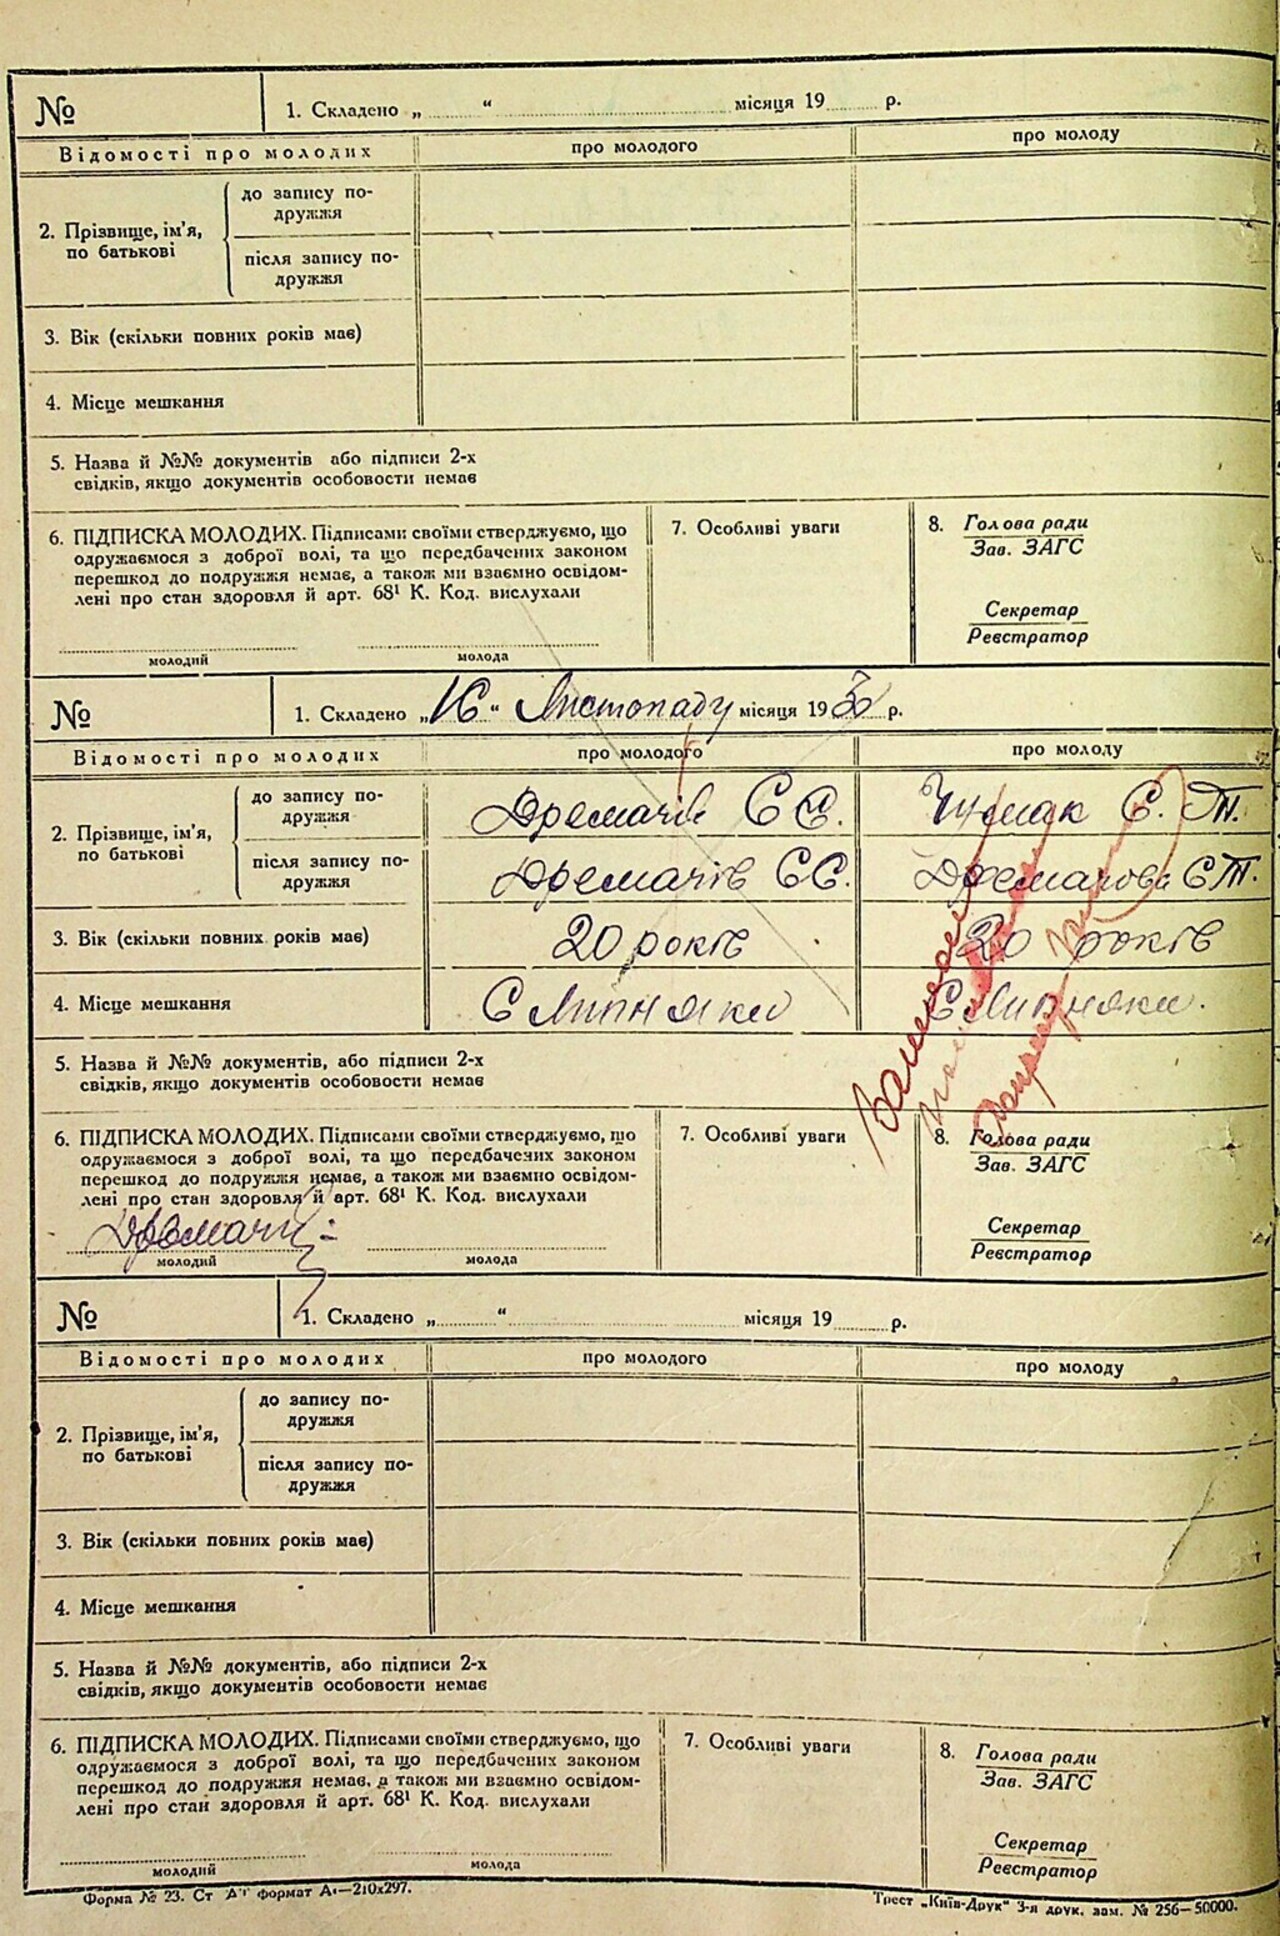 №
1. Складено „ “ місяця 19 р.
Відомості про молодих
про молодого
про молоду
2. Прізвище, ім'я, по батькові
до запису по-
дружжя
після запису по-
дружжя
3. Вік (скільки повних років має)
4. Місце мешкання
5. Назва й №№ документів або підписи 2-х
свідків, якщо документів особовости немає
6. ПІДПИСКА МОЛОДИХ. Підписами своїми стверджуємо, що
одружаємося з доброї волі, та що передбачених законом
перешкод до подружжя немає, а також ми взаємно освідом-
лені про стан здоровля й арт. 68¹ К. Код. вислухали
молодий
молода
7. Особливі уваги
8. Голова ради
Зав. ЗАГС
Секретар
Реєстратор
№
1. Складено „ “ Листопаду місяця 1930 р.
Відомості про молодих
про молодого
про молоду
2. Прізвище, ім'я, по батькові
до запису по-
дружжя
Дремачів Є Є.
Чумак Є. Т.
після запису по-
дружжя
Дремачів Є Є.
Дремачова Є Т.
3. Вік (скільки повних років має)
20 років
20 років
4. Місце мешкання
С Липняки
С Липняки.
5. Назва й №№ документів, або підписи 2-х
свідків, якщо документів особовости немає
6. ПІДПИСКА МОЛОДИХ. Підписами своїми стверджуємо, що
одружаємося з доброї волі, та що передбачених законом
перешкод до подружжя немає, а також ми взаємно освідом-
лені про стан здоровля й арт. 68¹ К. Код. вислухали
молодий
молода
7. Особливі уваги
8. Голова ради
Зав. ЗАГС
Секретар
Реєстратор
№
1. Складено „ “ місяця 19 р.
Відомості про молодих
про молодого
про молоду
2. Прізвище, ім'я, по батькові
до запису по-
дружжя
після запису по-
дружжя
3. Вік (скільки повних років має)
4. Місце мешкання
5. Назва й №№ документів, або підписи 2-х
свідків, якщо документів особовости немає
6. ПІДПИСКА МОЛОДИХ. Підписами своїми стверджуємо, що
одружаємося з доброї волі, та що передбачених законом
перешкод до подружжя немає, а також ми взаємно освідом-
лені про стан здоровля й арт. 68¹ К. Код. вислухали
молодий
молода
7. Особливі уваги
8. Голова ради
Зав. ЗАГС
Секретар
Реєстратор
Форма № 23. Ст формат А4—210х297.
Трест „Київ-Друк“ 3-я друк. зам. № 256—50000.